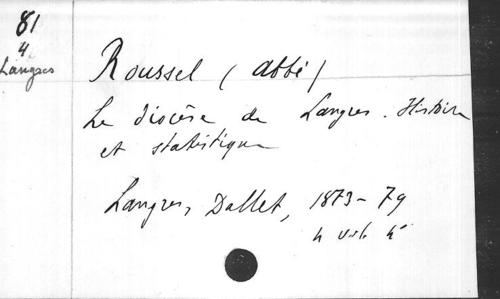 81
4
Langres
Roussel (abbé)
Le diocèse de Langres. Histoire
et statistique
Langres, Dallet, 1873-79
4 vol. 4°